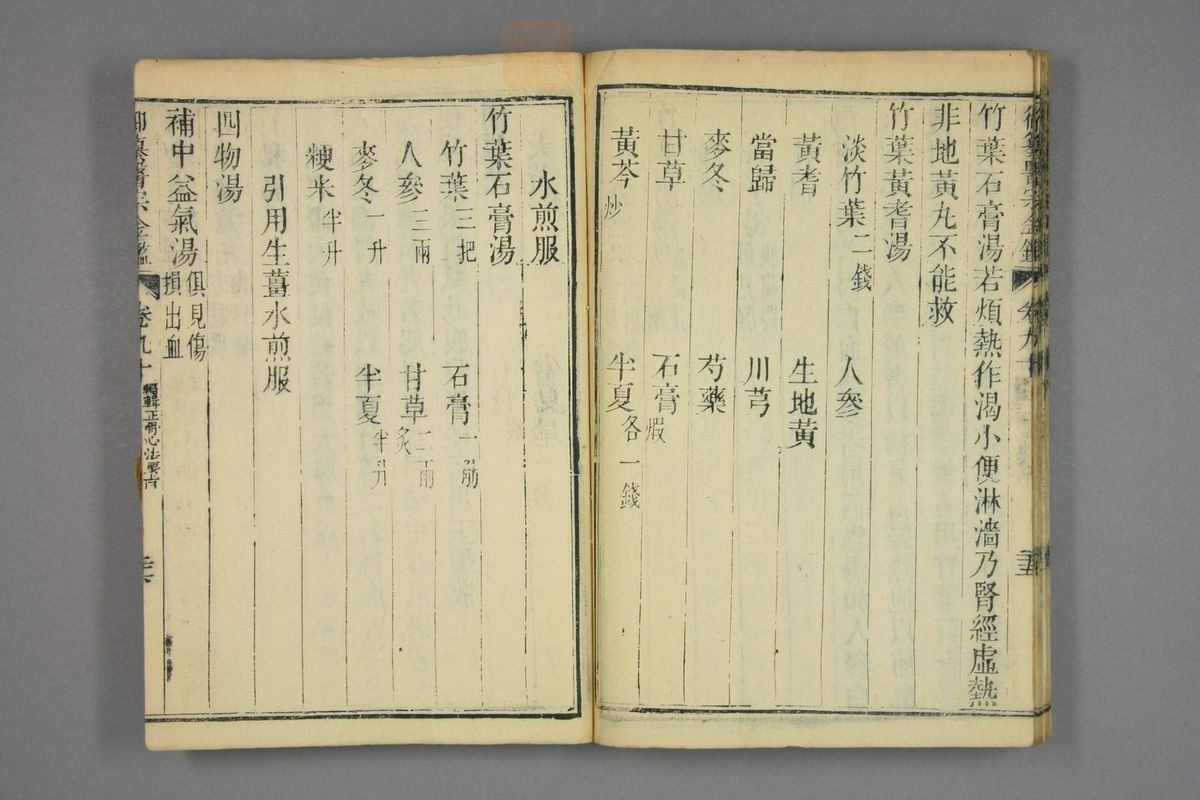 竹葉石膏湯若煩熱作渴小便淋濇乃腎經虛熱
非地黃丸不能救
竹葉黃耆湯
淡竹葉二錢 人參
黃耆 生地黃
當歸 川芎
麥冬 芍藥
甘草 石膏煅
黃芩炒 半夏各一錢
水煎服
竹葉石膏湯
竹葉三把 石膏一觔
人參三兩 甘草炙二兩
麥冬一升 半夏半升
粳米半升
引用生薑水煎服
四物湯
補中益氣湯俱見傷損出血
御纂醫宗金鑑 卷九十 編輯正骨心法要旨